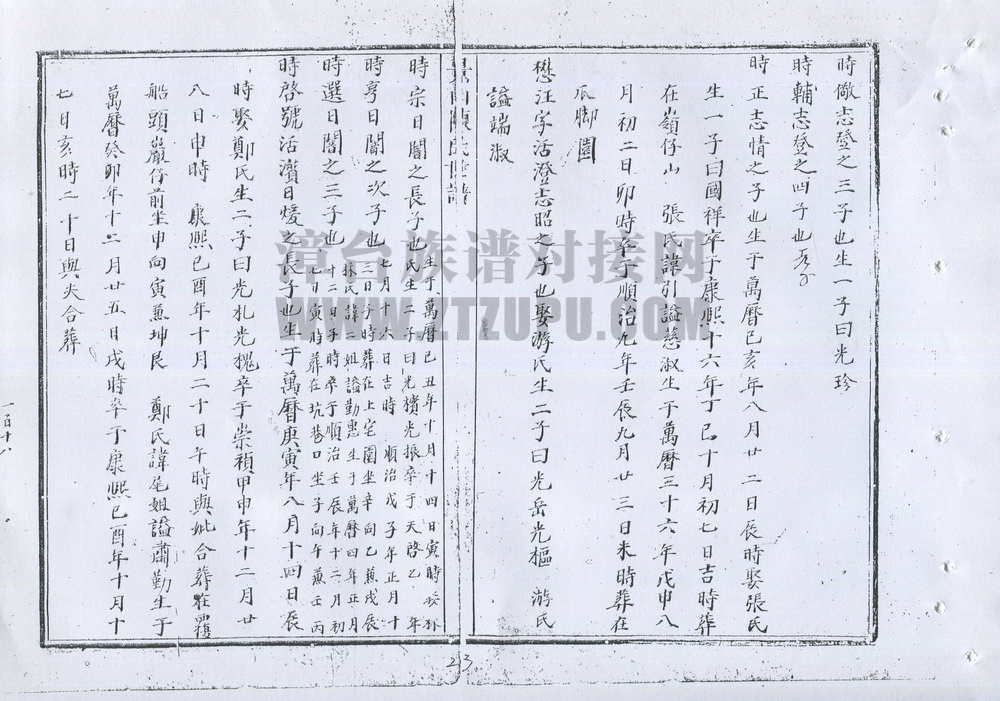 時儆志登之三子也生一子曰光珍
時輔志登之四子也
時正志情之子也生于萬曆己亥年八月廿二日辰時娶張氏
生一子曰國祥卒于康熙十六年丁巳十月初七日吉時葬
在嶺仔山 張氏諱引謚慈淑生于萬曆三十六年戊申八
月初二日卯時卒于順治九年壬辰九月廿三日未時葬在
瓜脚園
懋汪字活澄志昭之子也娶游氏生二子曰光岳光樞 游氏
謚端淑
陳氏世譜
時宗日闇之長子也生于萬曆己丑年十月十四日寅時娶林
氏生二子曰光檳光振卒于天啓乙 年
時亨日闇之次子也七月十六日吉時 順治戊子年正月十
三日子時葬在上宅園坐辛向乙兼戌辰
時選日闇之三子也林氏諱二姐謚勤惠生于萬曆四年正月
十二日子時卒于順治壬辰年十二月初
七日寅時葬在坑巷口坐子向午兼壬丙
時啓號活濱日煖之長子也坐于萬曆庚寅年八月十四日辰
時娶鄭氏生二子曰光札光槐卒于崇禎甲申年十二月廿
八日申時 康熙己酉年十月二十日午時與妣合葬在羅
船頭巖仔前坐申向寅兼坤艮 鄭氏諱尾姐謚肅勤生于
萬曆癸卯年十二月廿五日戌時卒于康熙己酉年十月十
七日亥時二十日與夫合葬
一百十八
23
漳台族谱对接网
WWW.ZTZUPU.COM